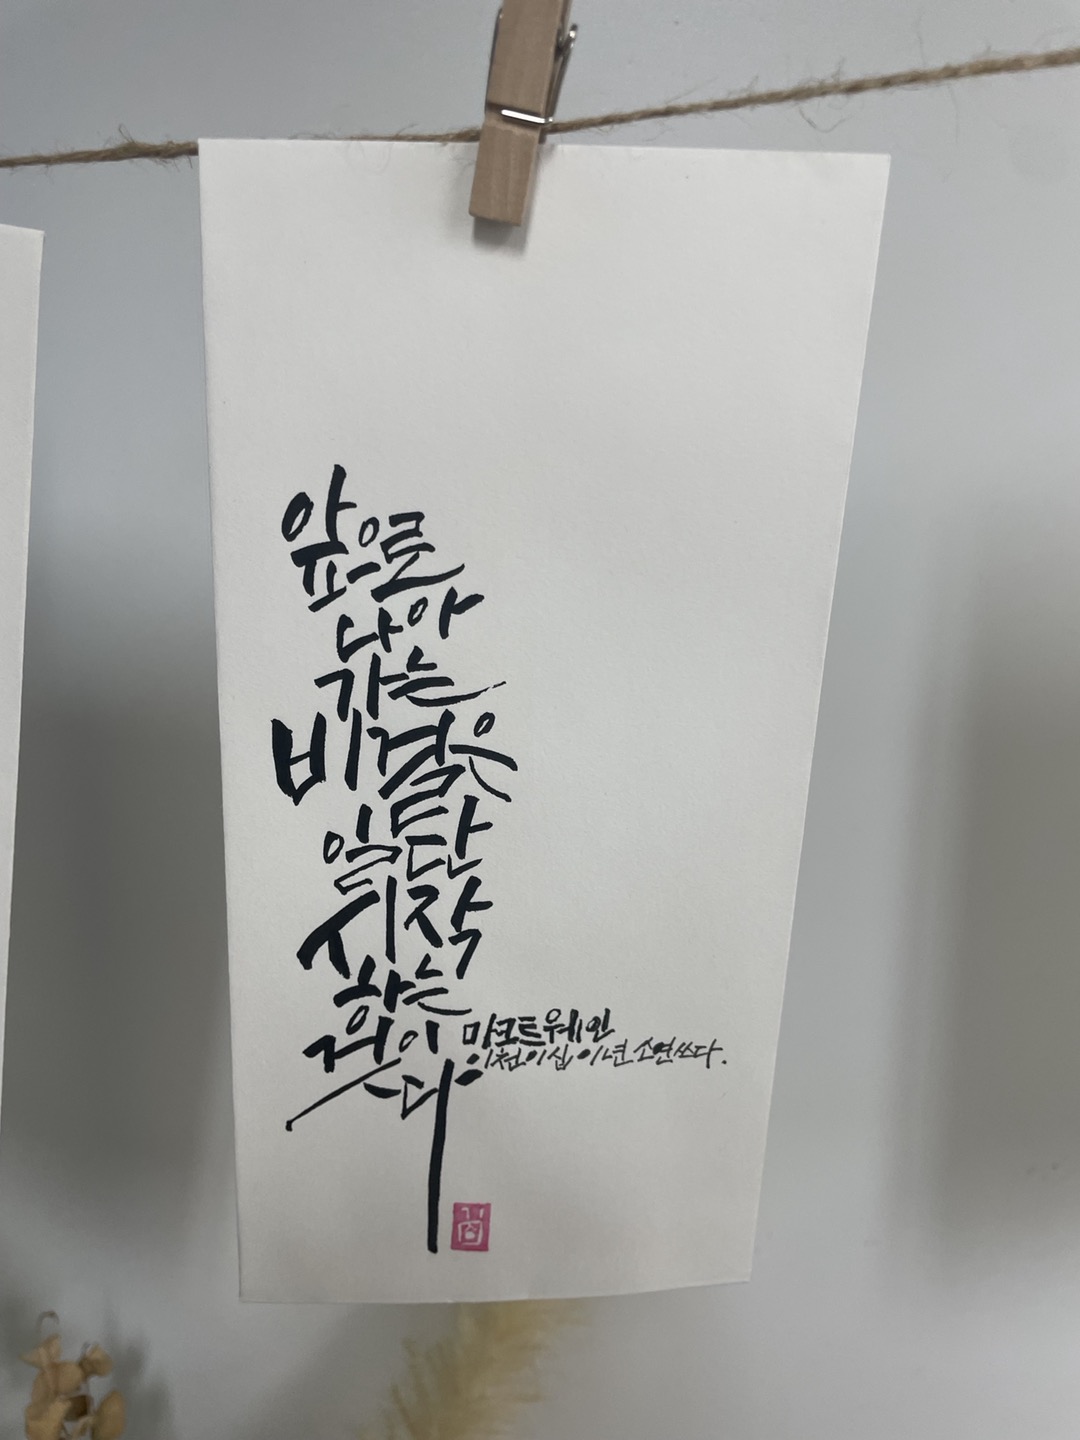 앞으로
나아
가는
비결은
일단
시작
하는
것이
다.
마크트웨인
이천이십이년 소연쓰다.